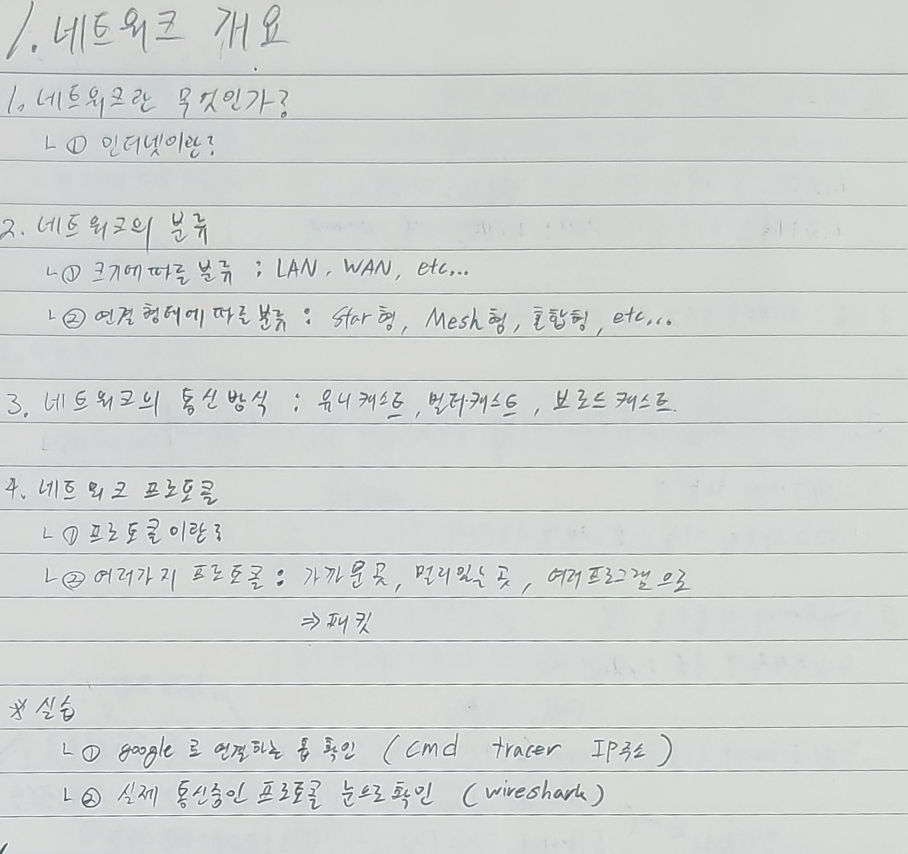 1. 네트워크 개요
1. 네트워크란 무엇인가?
ㄴ ① 인터넷이란?
2. 네트워크의 분류
ㄴ ① 크기에 따른 분류 : LAN, WAN, etc...
ㄴ ② 연결 형태에 따른 분류 : Star형, Mesh형, 혼합형, etc...
3. 네트워크의 통신 방식 : 유니캐스트, 멀티캐스트, 브로드캐스트.
4. 네트워크 프로토콜
ㄴ ① 프로토콜이란?
ㄴ ② 여러가지 프로토콜 : 가까운 곳, 멀리있는 곳, 여러프로그램으로
⇒ 패킷
※ 실습
ㄴ ① google로 연결하는 홉 확인 (cmd tracer IP주소)
ㄴ ② 실제 통신중인 프로토콜 눈으로 확인 (wireshark)